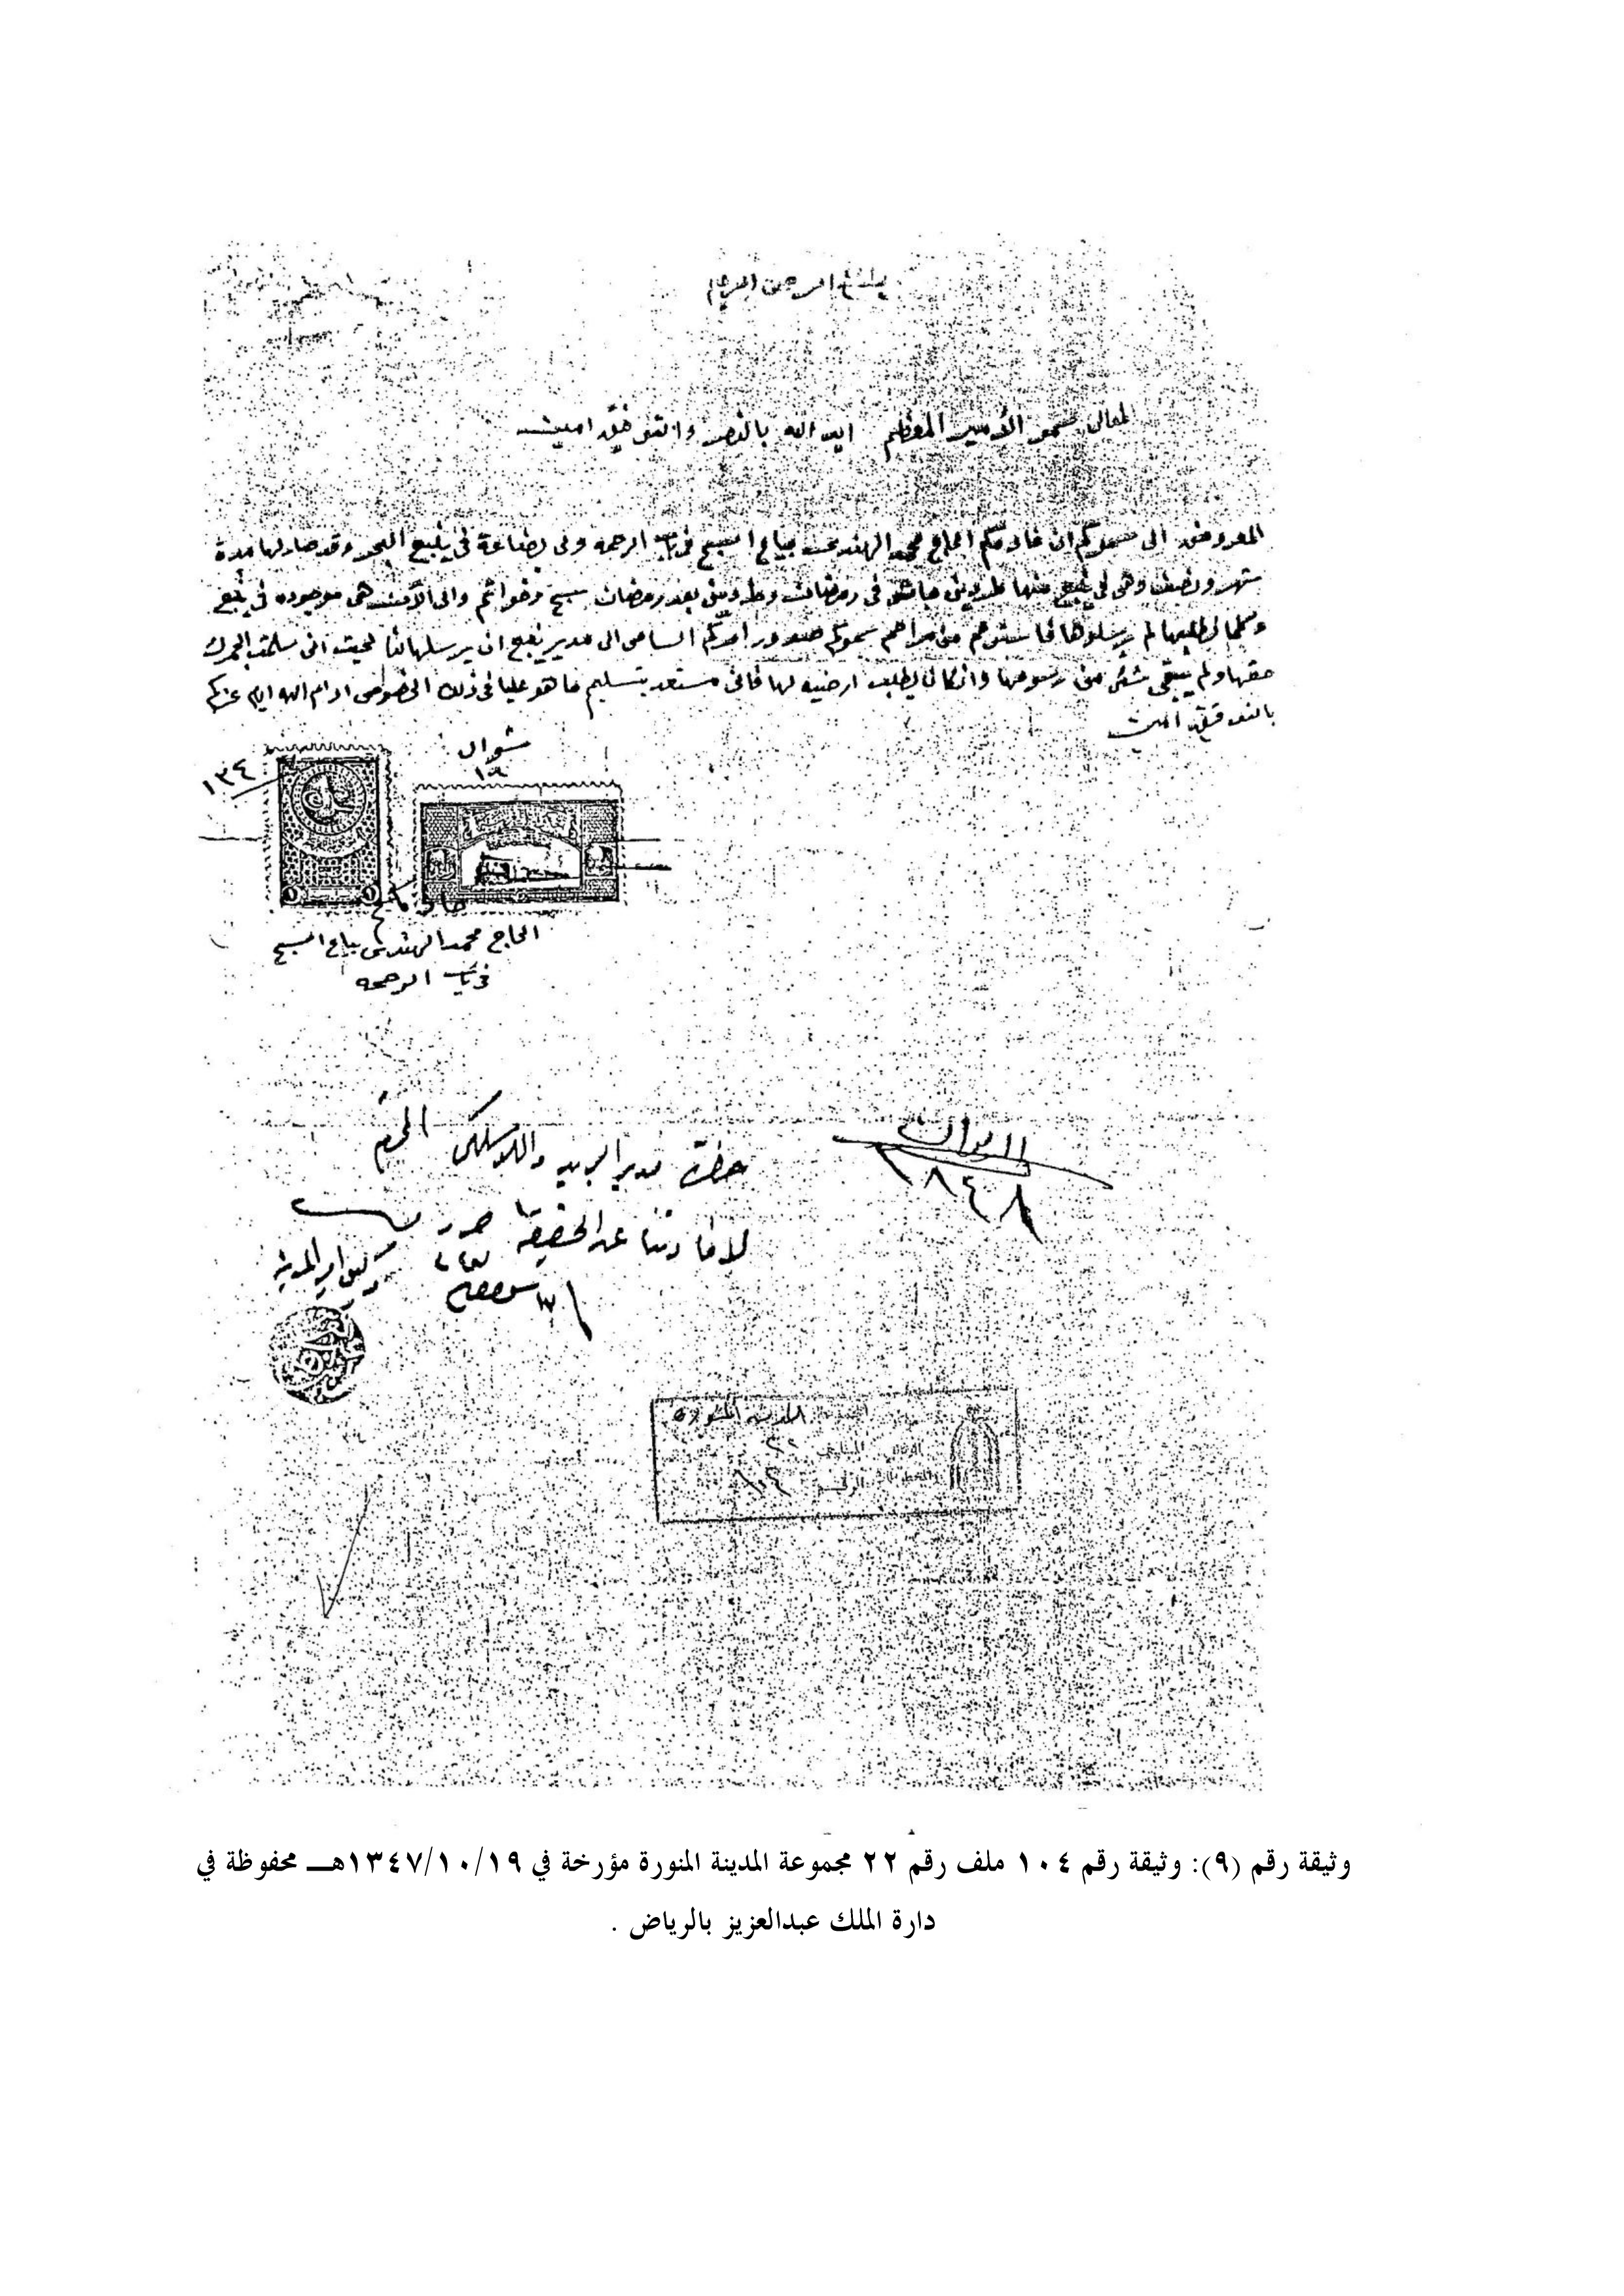 بسم الله الرحمن الرحيم
لمعالي سمو الأمير المعظم ايده الله بالنصر والتوفيق امين
المعروض الى سموكم ان خادمكم الحاج محمد الهندي بياع السبح في باب الرحمه ولي بضاعة في ينبع البحر وقد صار لها مدة
شهر ونصف وهي في ينبع منها طردين في رمضان وطردين بعد رمضان سبح وخواتم والى الآن هي موجوده في ينبع
وكلما نطلبها لم يرسلوها فاسترحم من مراحم سموكم صدور امركم السامي الى مدير ينبع ان يرسلها لنا بحيث اني سلمت الجمرك
حقها ولم يبقى شئ من رسومها وان كان يطلب ارضيه لها فاني مستعد بتسليم ما هو عليا في ذلك الخصوص ادام الله ايام عزكم
بالتوفيق امين
شوال
١٩
١٣٤
خادمكم
الحاج محمد الهندي بياع السبح
في باب الرحمه
الديوان
١٨٤٨
حضرة مدير البريد واللاسلكي المحترم
لافادتنا عن الحقيقة حرر
وكيل امير المدينة
المدينة المنورة
٢٢
الرقم ١٠٤
وثيقة رقم (٩): وثيقة رقم ١٠٤ ملف رقم ٢٢ مجموعة المدينة المنورة مؤرخة في ١٣٤٧/١٠/١٩هـــ محفوظة في
دارة الملك عبدالعزيز بالرياض .